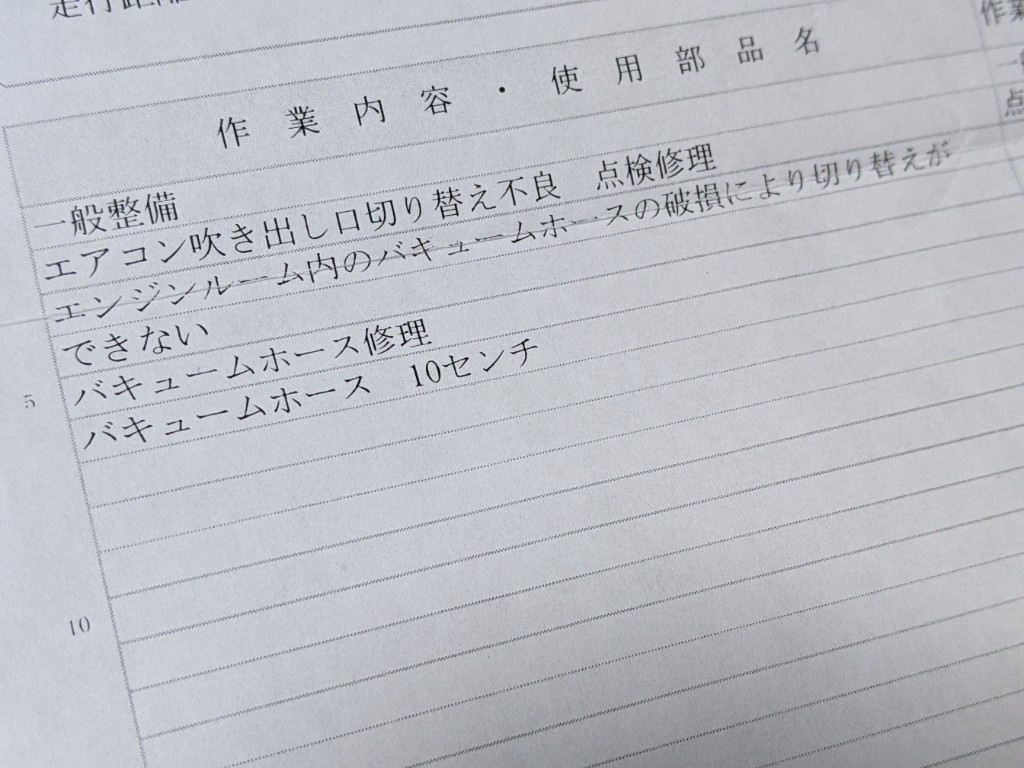 走行距離
作業内容・使用部品名
作業
一般整備
エアコン吹き出し口切り替え不良　点検修理
エンジンルーム内のバキュームホースの破損により切り替えが
できない
5
バキュームホース修理
バキュームホース　10センチ
10